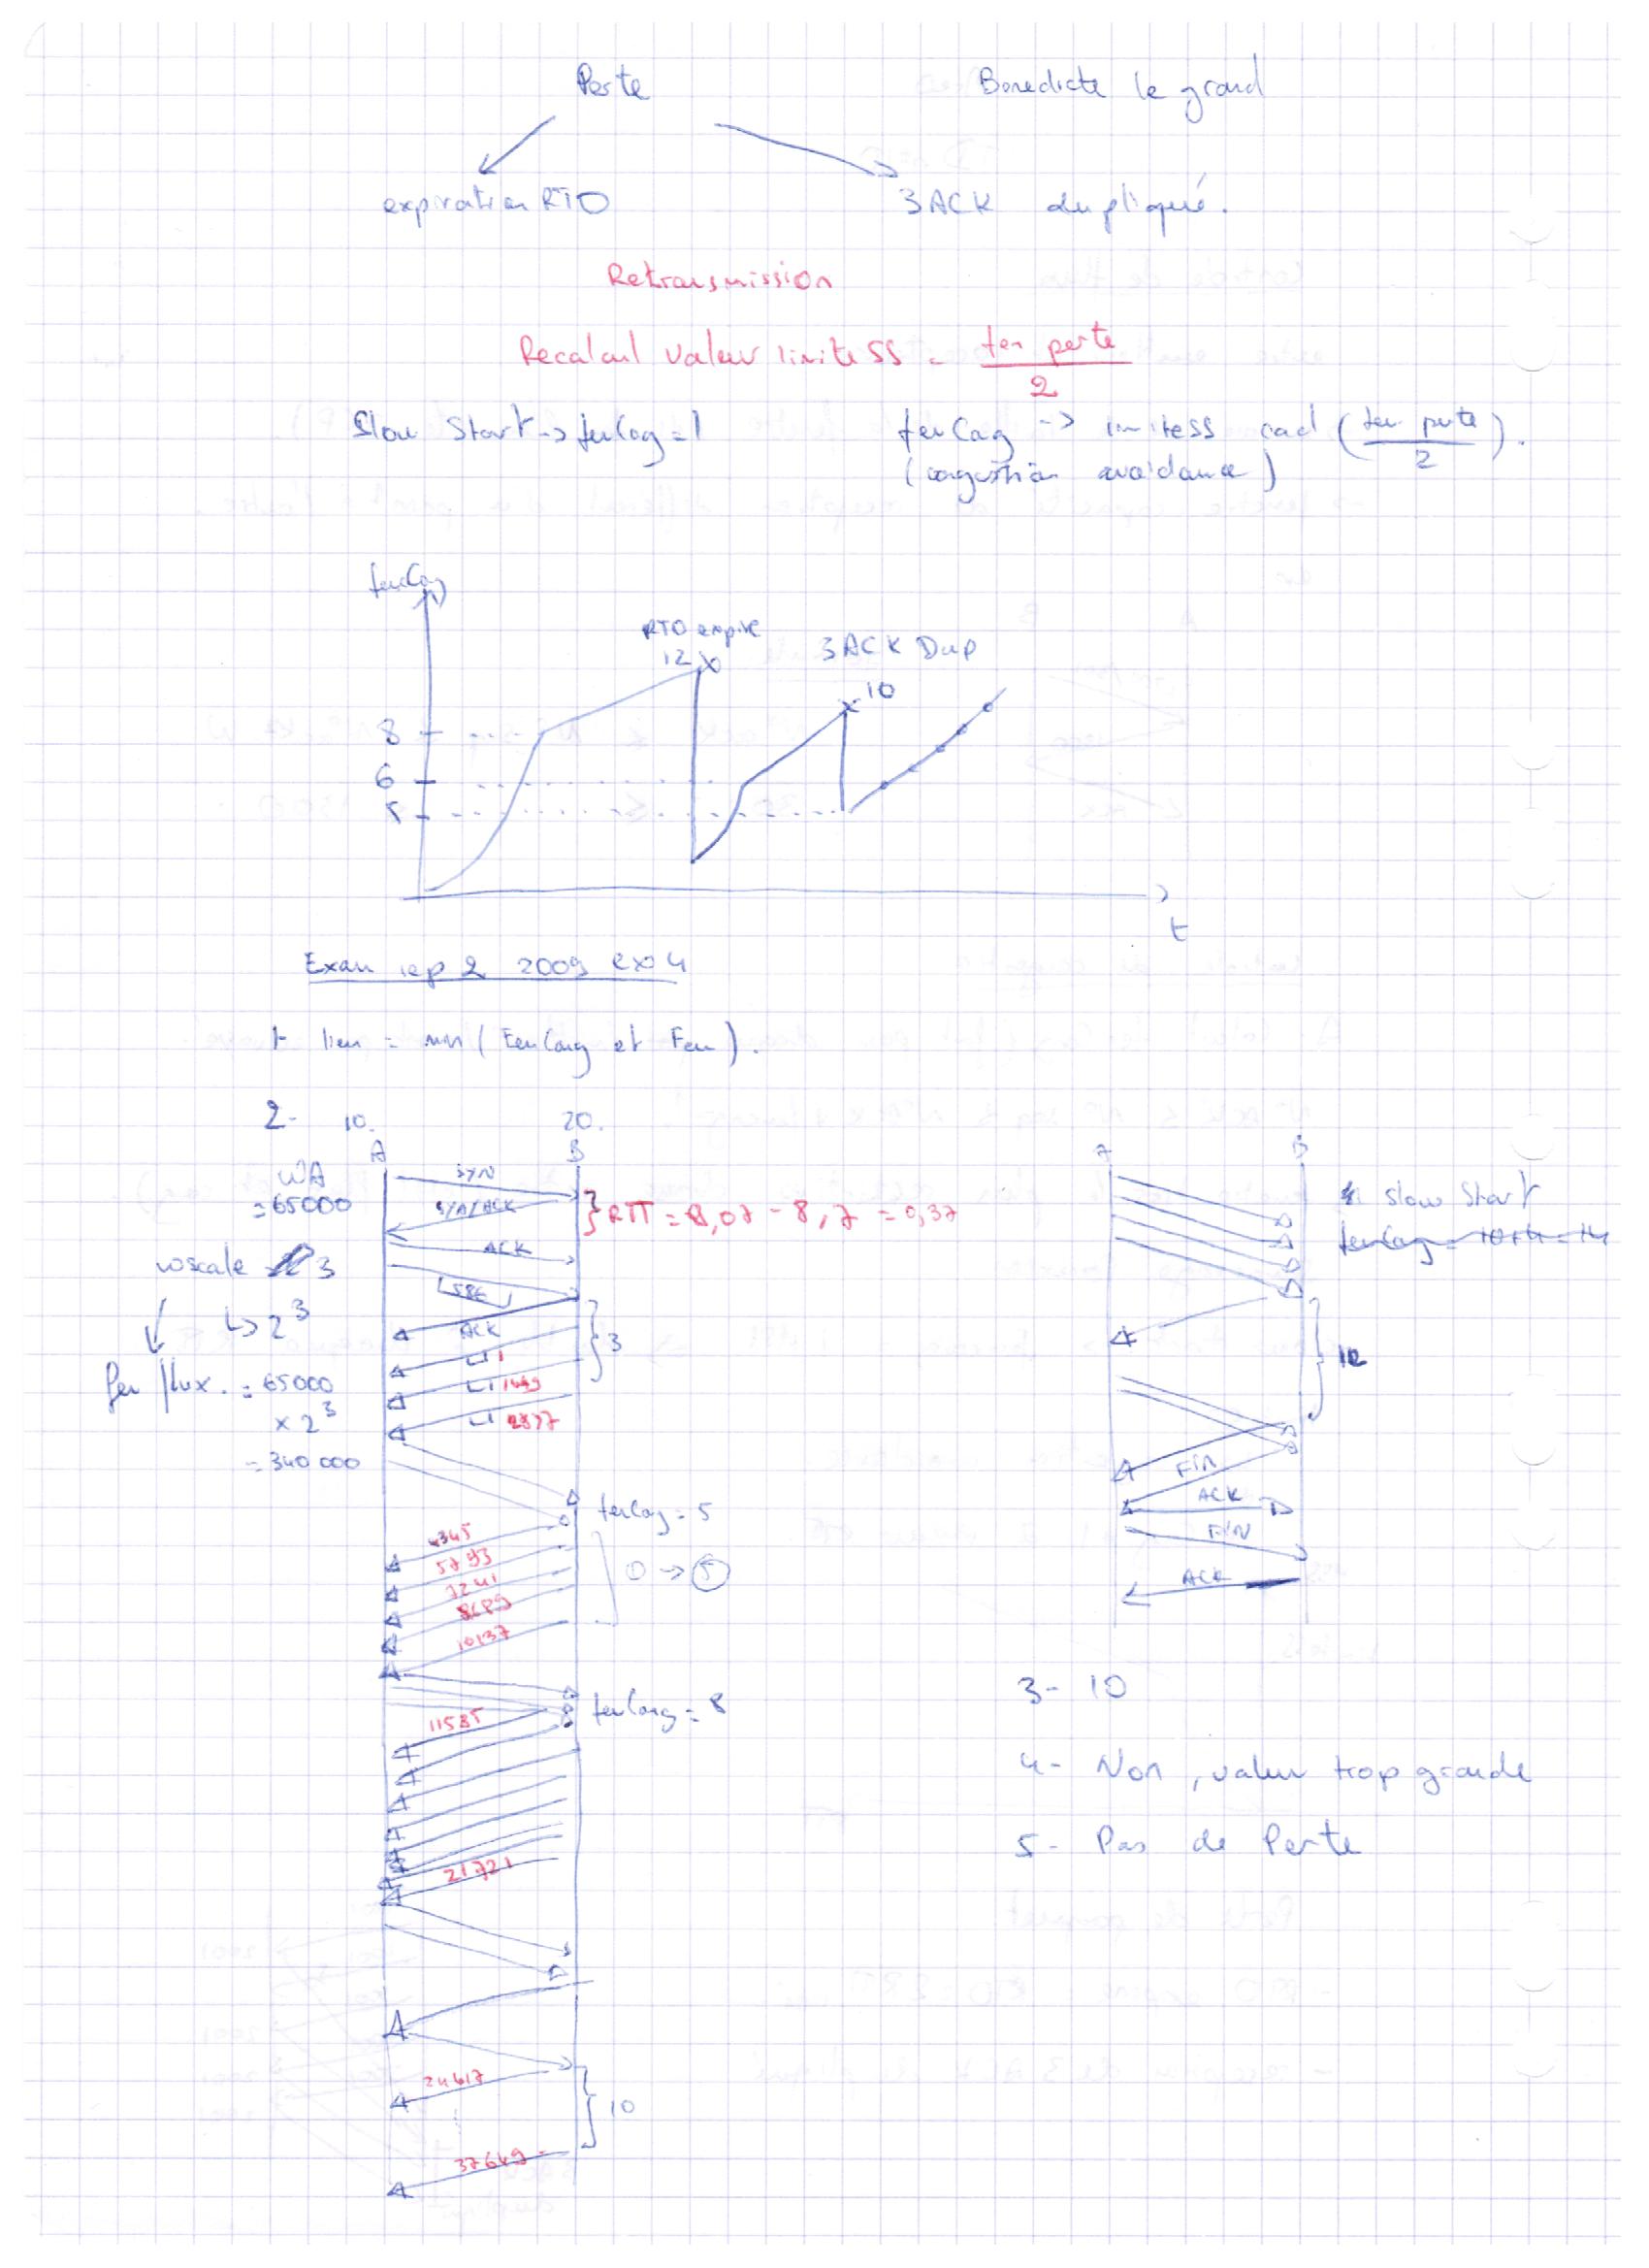 Perte
Benedicte le grand
expiration RTO
3 ACK dupliqué.
Retransmission
Recalcul valeur limite SS = fen perte / 2
Slow Start -> fenCog = 1
fenCog -> limitess cad (fen perte / 2).
(congestion avoidance)
fenCog
RTO expire
12
3 ACK Dup
10
8
6
5
t
Exam rep 2 2009 ex 4
t lieu = min (FenCong et Fen).
2- 10. 20.
A B
WA
= 65000
SYN
SYN/ACK
} RTT = 8,07 - 8,7 = 0,37
ACK
wscale 3
↳ 2³
ACK
3
1
1449
2897
fen flux. = 65000
x 2³
= 340 000
fenCog = 5
4345
5793
7241
8689
10137
0 -> 5
fenCong = 8
11585
21721
24617
10
37649
A B
Slow Start
fenCog = 10+4 = 14
FIN
ACK
FIN
ACK
3- 10
4- Non, valeur trop grande
5- Pas de Perte